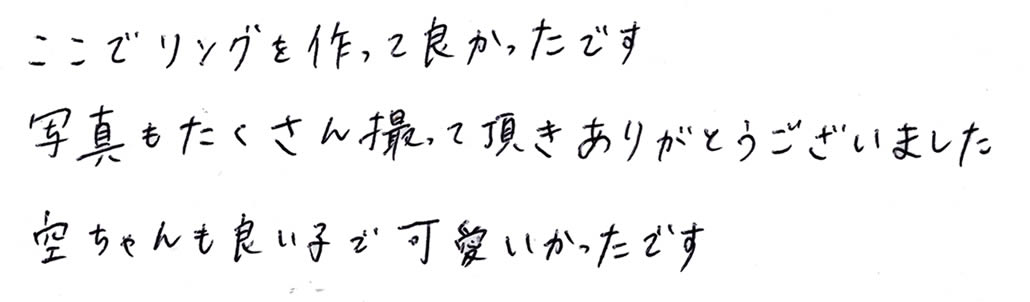 ここでリングを作って良かったです
写真もたくさん撮って頂きありがとうございました
空ちゃんも良い子で可愛いかったです